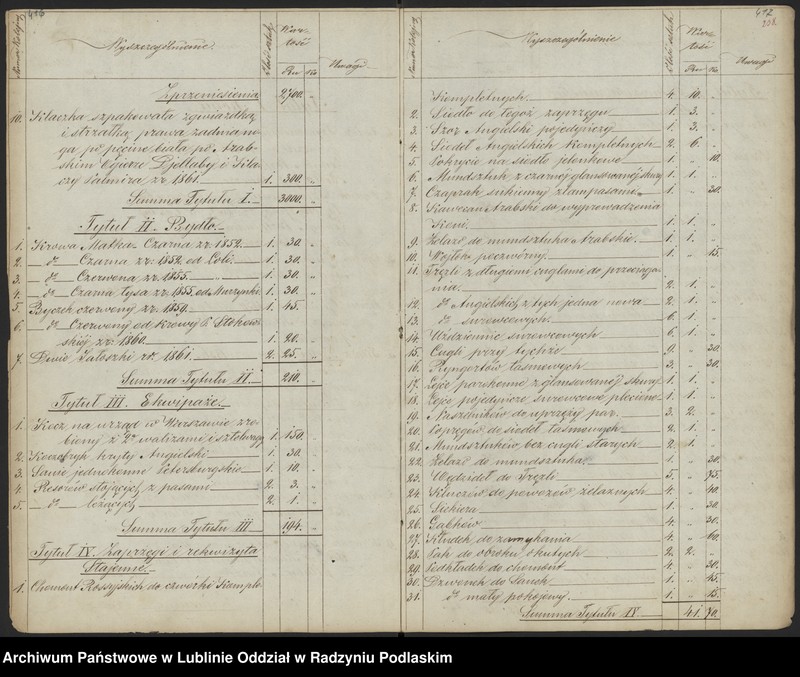 416
Numer kolejny
Wyszczególnienie.
Ilość sztuk
War-
tość
Rsr Ko
Uwagi
Zprzeniesienia 2700. "
10. Klaczka szpakowata zgwiazdką
i strzałką prawa zadnia no-
ga po pęcinę biała po Arab-
skim Ogierze Djellaby i Kla-
czy Palmira zr. 1861 1. 300. "
Summa Tytułu I. 3000. "
Tytuł II. Bydło.
1. Krowa Matka Czarna zr. 1852. 1. 30. "
2. - do Czarna zr. 1852 od Loli. 1. 30. "
3. - do Czerwona zr. 1855 1. 30. "
4. - do Czarna łysa zr. 1855 od Murzynki 1. 30. "
5. Byczek czerwony zr. 1859 1. 45. "
6. - do Czerwony od krowy
skiej zr. 1860. 1. 20. "
7. Dwie Jałoszki zr. 1861. 2. 25. "
Summa Tytułu II. 210. "
Tytuł III. Ekwipaże.
1. Kocz na urząd w Warszawie zro-
biony z 2ma walizami i sztelwagą 1. 150. "
2. Koczobryk kryty Angielski 1. 30. "
3. Sanie jednokonne Petersburgskie 1. 10. "
4. Resorów stojących z pasami 2. 3. "
5. - do leżących 2. 1. "
Summa Tytułu III 194. "
Tytuł IV. Zaprzęgi i rekwizyta
Stajenne.
1. Chomont Rossyjskich do czwórki Komple-
417
208.
Numer kolejny
Wyszczególnienie
Ilość sztuk
War-
tość
Rsr Ko
Uwagi
Kompletnych 4. 10. "
2. Siodło do tegoż zaprzęgu 1. 3. "
3. Szor Angielski pojedyńczy 1. 3. "
4. Siodeł Angielskich kompletnych 2. 6. "
5. Pokrycie na siodło jelonkowe 1. " 10.
6. Mundsztuk z czarnej glansowanej skury 1. 1. "
7. Czaprak sukienny z lampasami 1. " 30.
8. Kawecan Arabski do wyprowadzenia
Koni. 1. 1. "
9. Żelazo do mundsztuka Arabskie. 1. 1. "
10. Wojłok poczwórny. 1. " 15.
11. Tręzli z długiemi cuglami do przeciąga-
nia 2. 1. "
12. do Angielskich z tych jedna nowa 2. 1. "
13. do surowcowych. 6. 1. "
14. Uzdziennic surowcowych 6. 1. "
15. Cugli przy tychże 9. " 30.
16. Ryngortów taśmowych 3. " 30.
17. Lejce parokonne z glansowanej skury 1. 1. "
18. Lejce pojedyńcze surowcowe plecione 1. 1. "
19. Naszelników do uprzęży par. 3. 2. "
20. Popręgów do siodeł taśmowych 2. 1. "
21. Mundsztuków bez cugli starych 2. 1. "
22. Żelazo do mundsztuka. 1. " 30.
23. Wędzideł do Tręzli 5. " 75.
24. Kluczów do powozów żelaznych 4. " 40.
25. Siekiera 1. " 30.
26. Grabków 4. " 30.
27. Kłudek do zamykania 4. " 60.
28. Pak do obroku okutych 2. 2. "
29. Podkładek do chomont 4. " 30.
30. Dzwonek do Sanek 1. " 15.
31. do mały pokojowy. 1. " 15.
Summa Tytułu IV 41. 70.
Archiwum Państwowe w Lublinie Oddział w Radzyniu Podlaskim